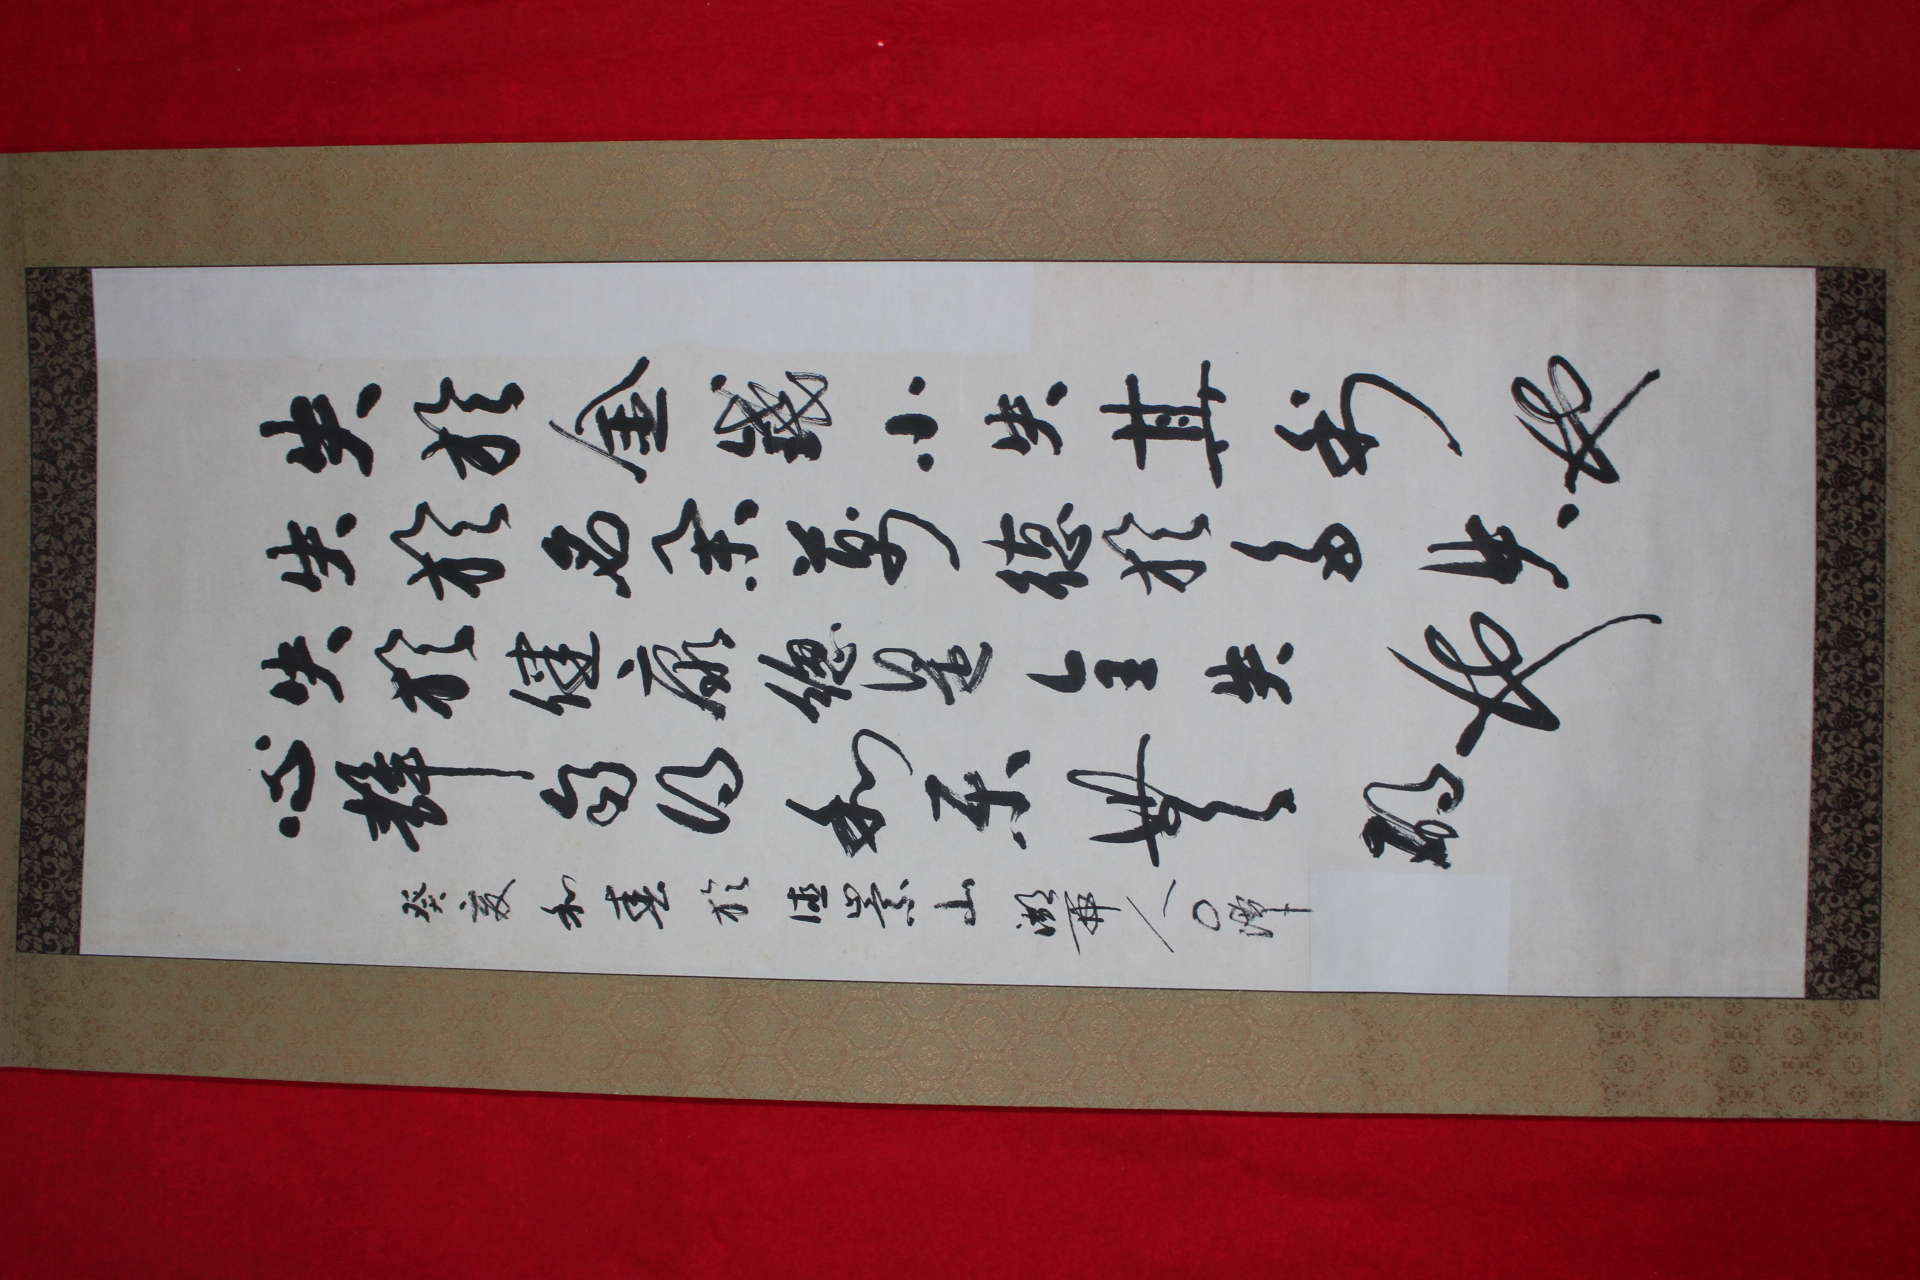 失於金錢小失其利也
失於名萬德於多失
失於健康總是全失也
心靜自得和樂無碍
癸亥和春於德崇山 人〇